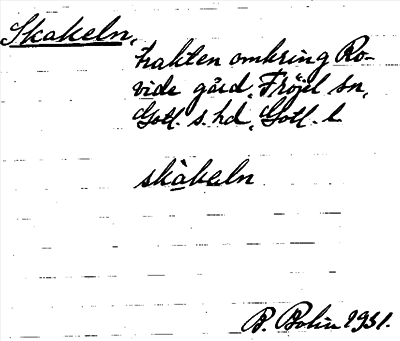 Skakeln,
trakten omkring Ro-
vide gård, Fröjel sn,
Gotl. s. hd, Gotl. l.
skàkeln
B. Bolin 1931.